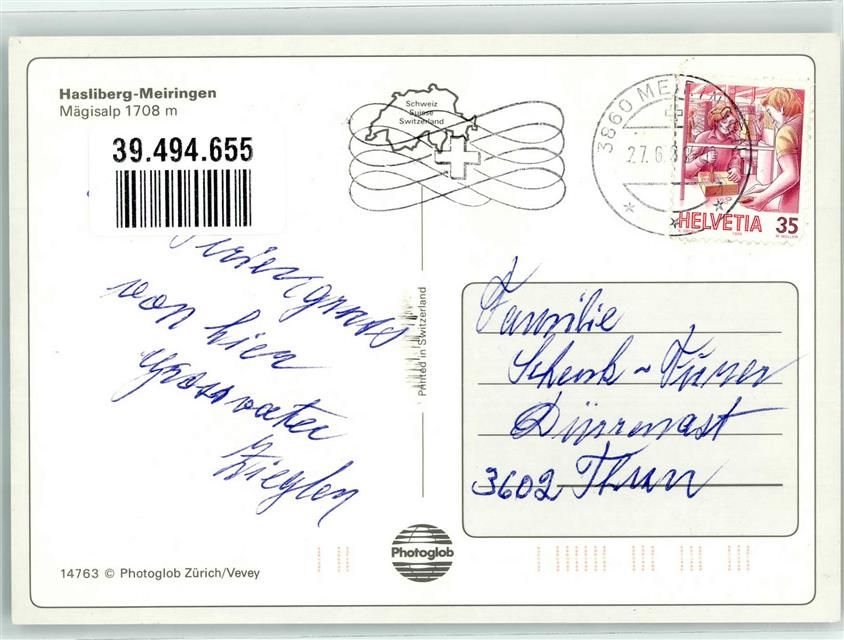 Hasliberg-Meiringen
Mägisalp 1708 m
39.494.655
Schweiz
Suisse
Switzerland
3860 MEIRIN
27.6.8
HELVETIA 35
Feriengruss
von hier
Grossvater
Zieglen
Printed in Switzerland
Familie
Schenk-Furer
Dürrenast
3602 Thun
Photoglob
14763 © Photoglob Zürich/Vevey